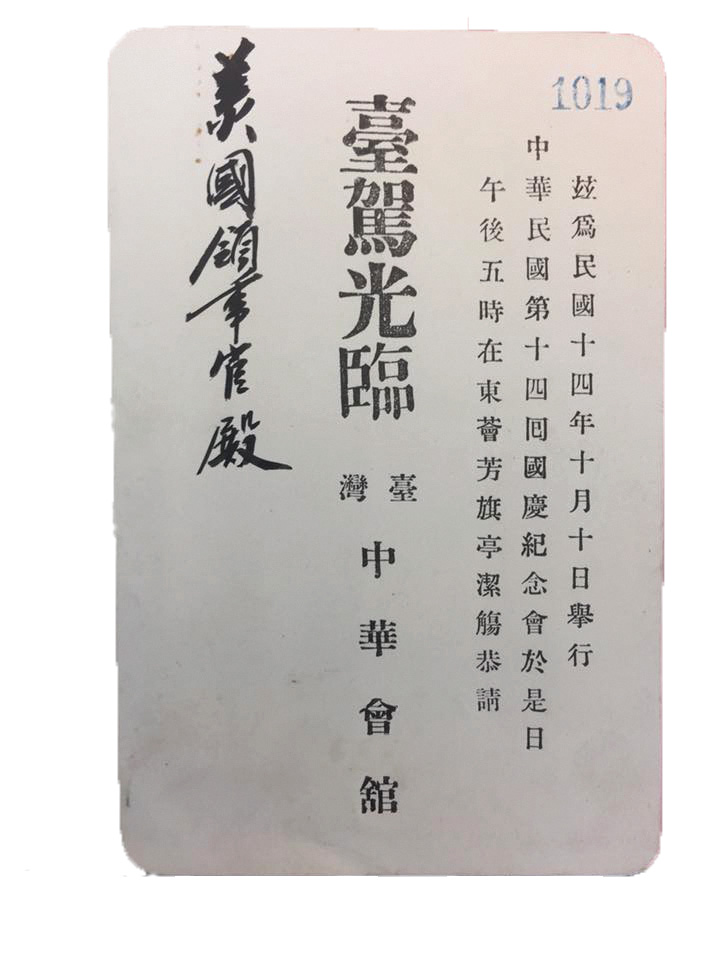 1019
玆爲民國十四年十月十日舉行
中華民國第十四囘國慶紀念會於是日
午後五時在東薈芳旗亭潔觴恭請
臺駕光臨
臺灣
中華會舘
美國領事官殿